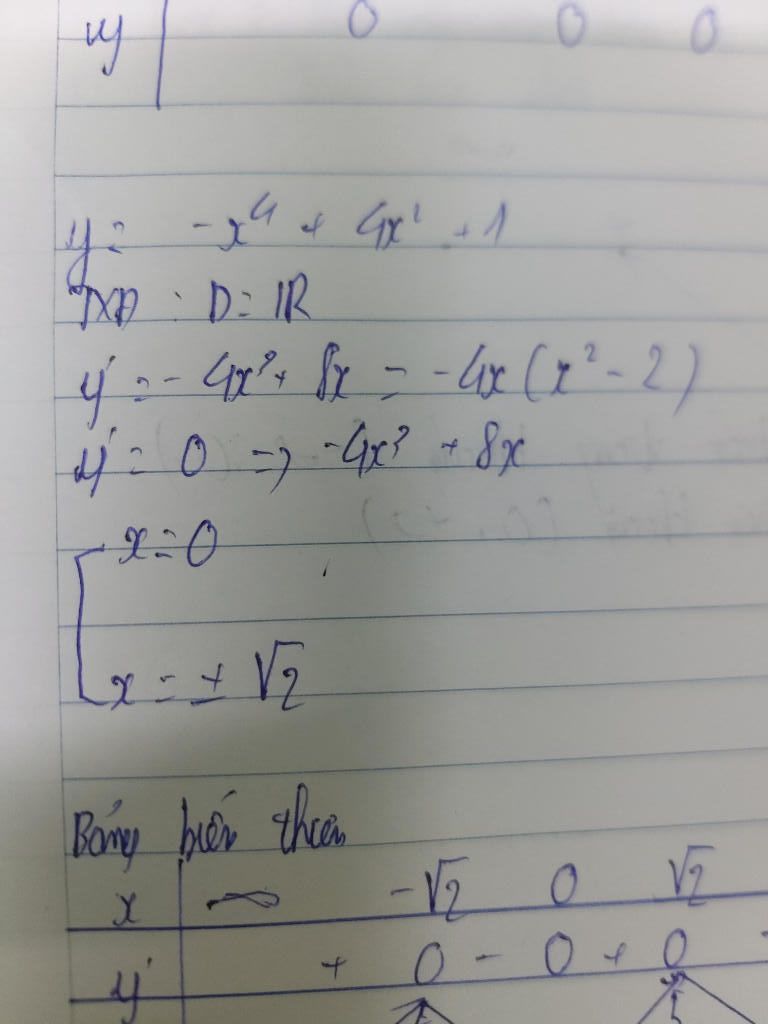 y' | 0 0 0
y = -x⁴ + 4x² + 1
TXĐ : D = ℝ
y' = -4x³ + 8x = -4x(x² - 2)
y' = 0 => -4x³ + 8x
[ x = 0
x = ± √2
Bảng biến thiên
x | -∞ -√2 0 √2
y' | + 0 - 0 + 0 -
5